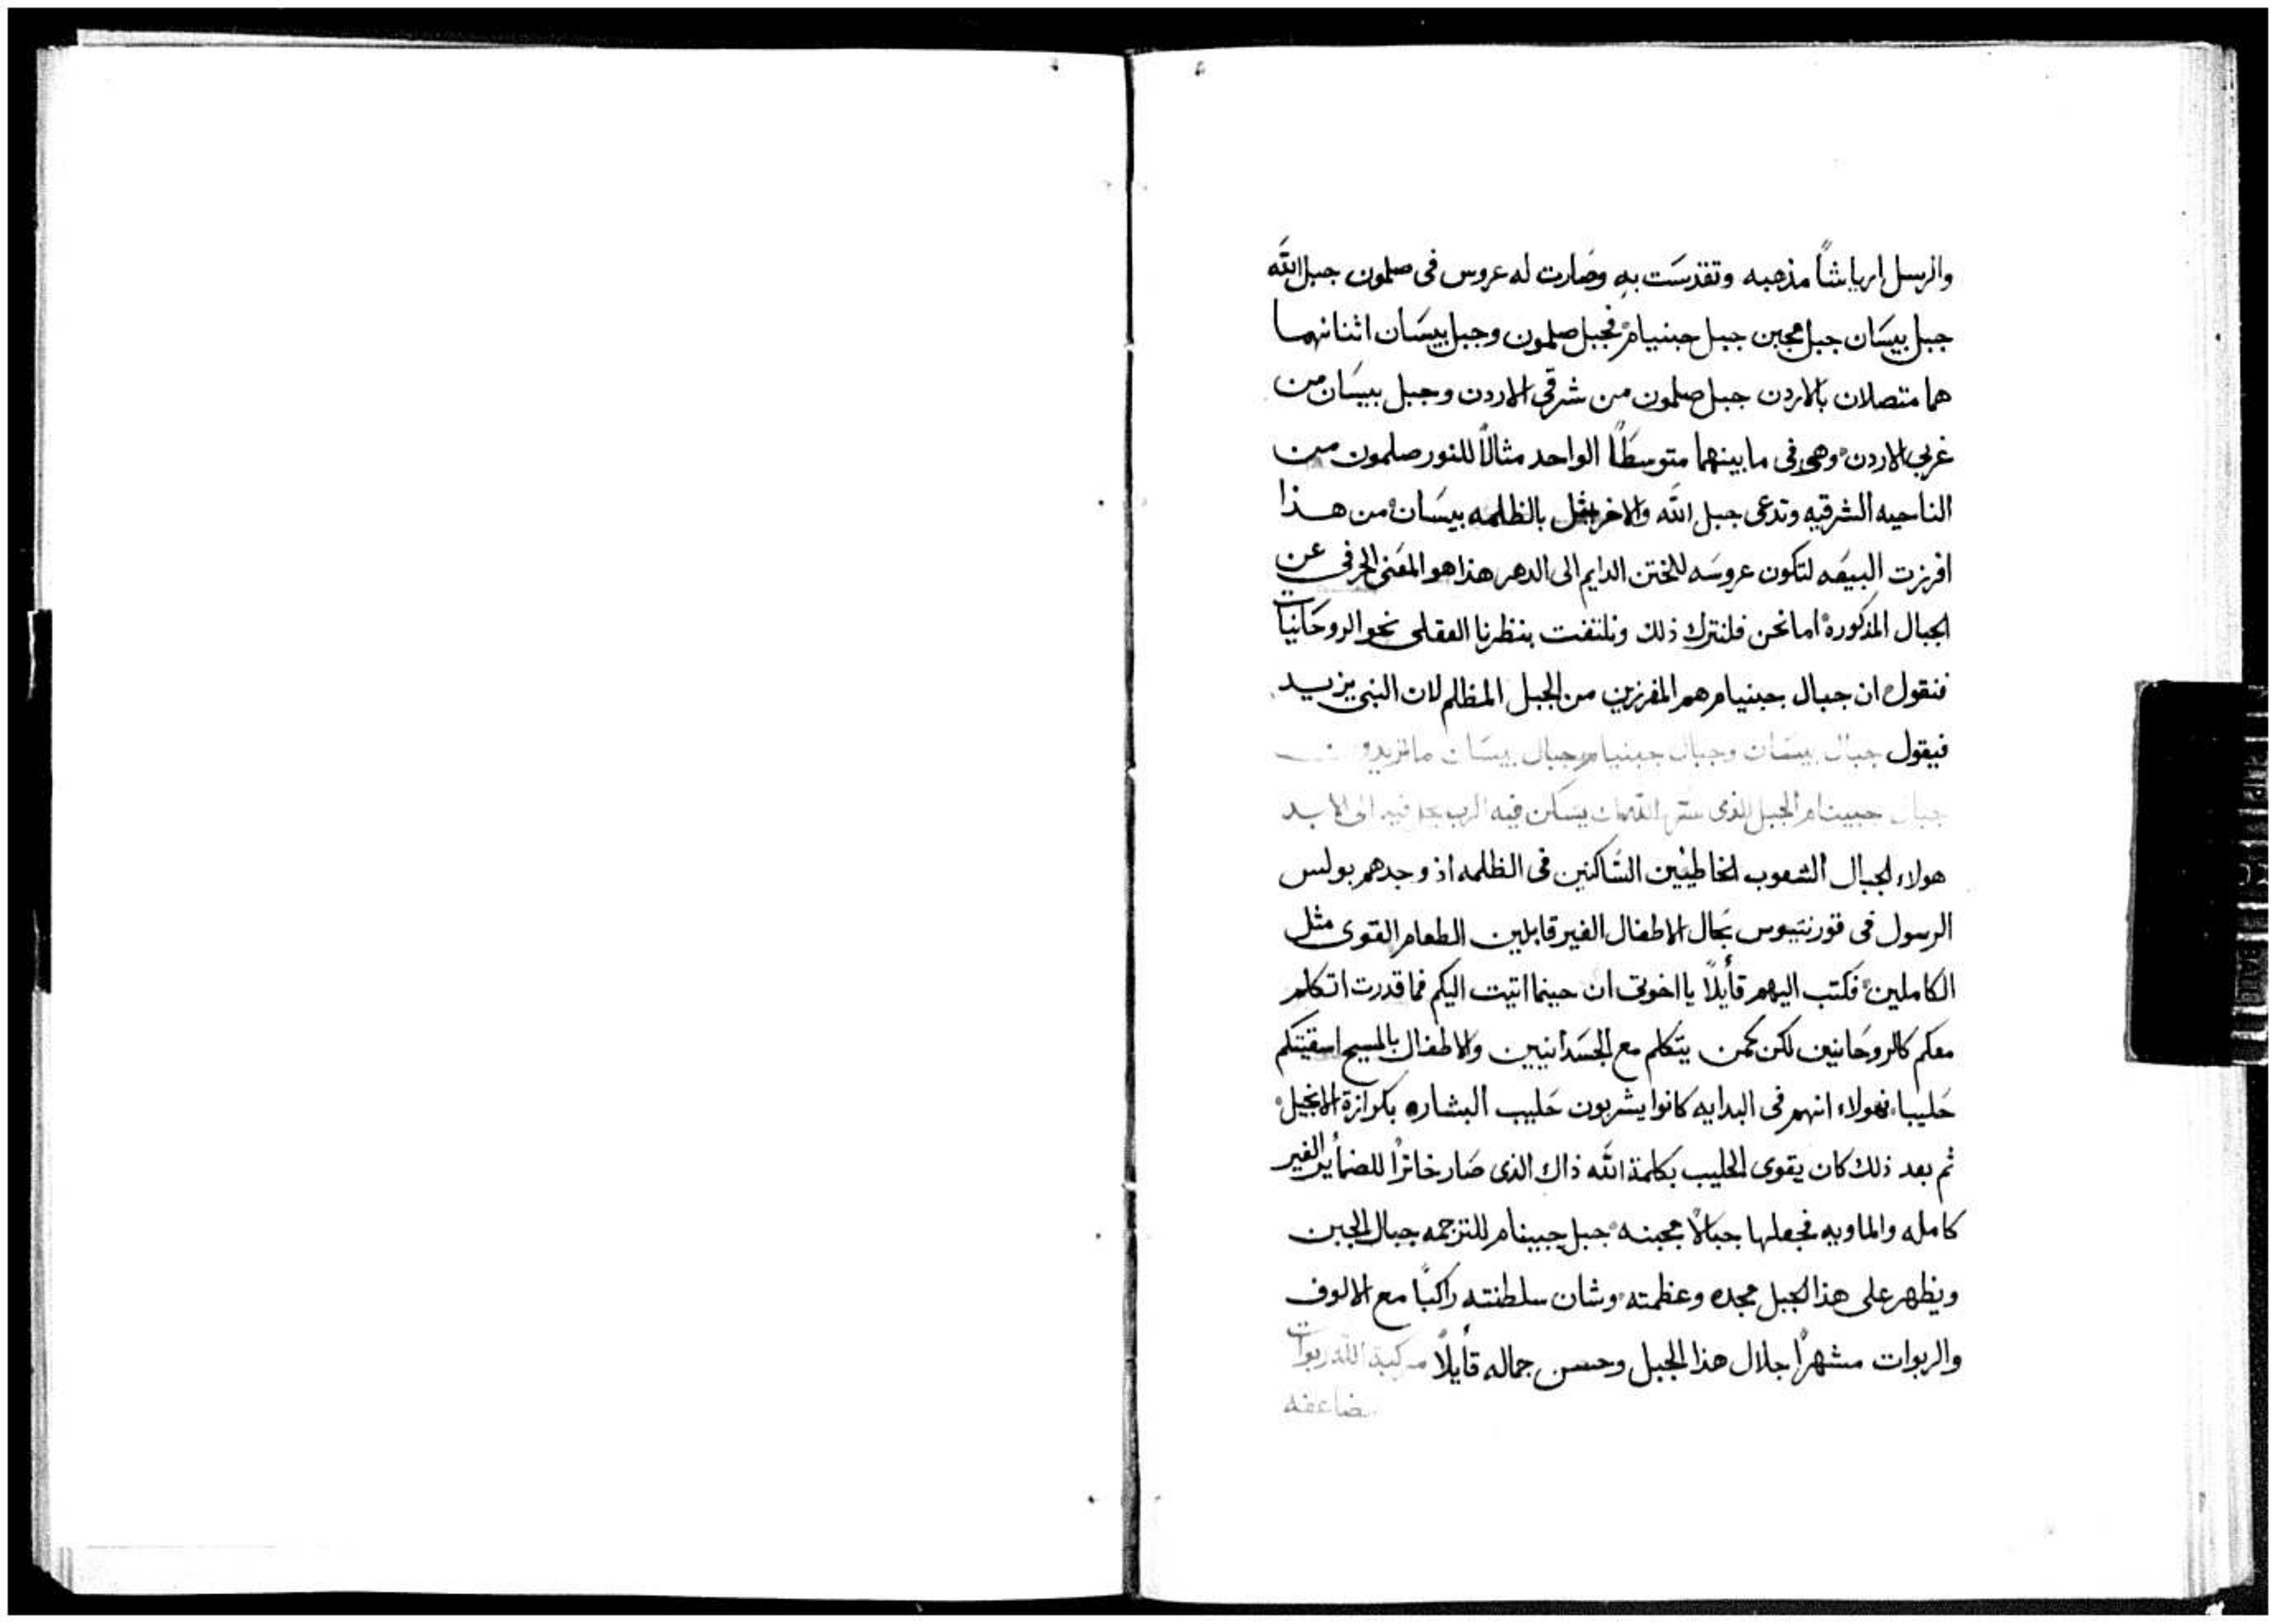 والرسل ارياشًا مذهبه وتقدسَت بهِ وصَارت له عروس فى صلمون جبل الله
جبل بيسَان جبل مجبن جبل جبنيام فجبل صلمون وجبل بيسَان اثنانهما
هما متصلان بالاردن جبل صلمون من شرقي الاردن وجبل بيسَان من
غربي الاردن وهى فى ما بينهما متوسطًا الواحد مثالًا للنور صلمون من
الناحيه الشرقيه وتدعى جبل الله والاخر بالظلمه بيسَان من هذا
افرزت البيعَه لتكون عروسَه للختن الدايم الى الدهر هذا هو المعَنى الحرفى عن
الجبال المذكوره اما نحن فلنترك ذلك ونلتفت بنظرنا العقلى نحو الروحَانيات
فنقول ان جبال جبنيام هم المفرزين من الجبل المظلم لان النبى يزيد
فيقول جبال بيسَان وجبال جبنيام جبال بيسَان ما تريدون
جبال جبينام الجبل الذى الله ان يسَكن فيه الرب يحل فيه الى الابد
هولاء الجبال الشعوب الخاطيين السَاكنين فى الظلمه اذ وجدهم بولس
الرسول فى قورنتيوس بحَال الاطفال الغير قابلين الطعام القوى مثل
الكاملين فكتب اليهم قأيلًا يا اخوتى ان حينما اتيت اليكم فما قدرت اتكلم
معكم كالروحَانيين لكن كمن يتكلم مع الجسَدانيين والاطفال بالمسيح اسقيتكم
حَليبا فهولاء انهم فى البدايه كانوا يشربون حَليب البشاره بكرازة الانجيل
ثم بعد ذلك كان يقوى الحليب بكلمة الله ذاك الذى صَار خاثرًا للضمأير الغير
كامله والماويه فجعلها جبَالًا مجبنه جبل جبينام للترجمه جبال الجبن
ويظهر على هذا الجبل مجده وعظمته وشان سلطنته راكبًا مع الالوف
والربوات مشهرًا جلال هذا الجبل وحسن جماله قأيلًا مركبة الله ربوات
مضاعفه